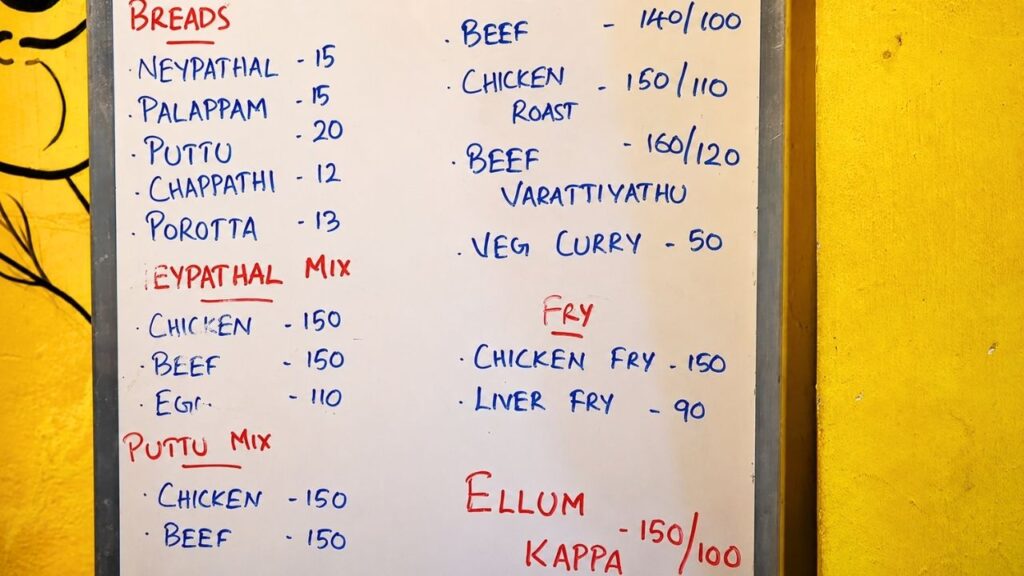 BREADS
· NEYPATHAL - 15
· PALAPPAM - 15
· PUTTU - 20
· CHAPPATHI - 12
· POROTTA - 13
EYPATHAL MIX
· CHICKEN - 150
· BEEF - 150
· EG - 110
PUTTU MIX
· CHICKEN - 150
· BEEF - 150
· BEEF - 140/100
· CHICKEN - 150/110
ROAST
· BEEF - 160/120
VARATTIYATHU
· VEG CURRY - 50
FRY
· CHICKEN FRY - 150
· LIVER FRY - 90
ELLUM
KAPPA - 150/100